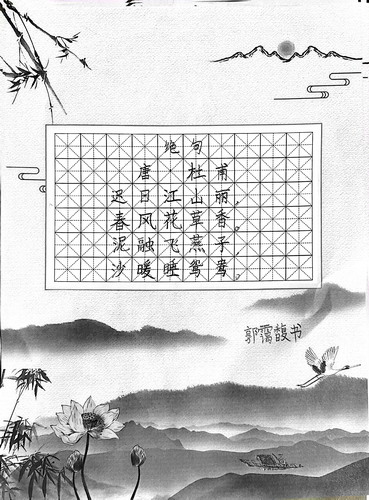 绝句
唐·杜甫
迟日江山丽，
春风花草香。
泥融飞燕子，
沙暖睡鸳鸯。
郭霭馥书